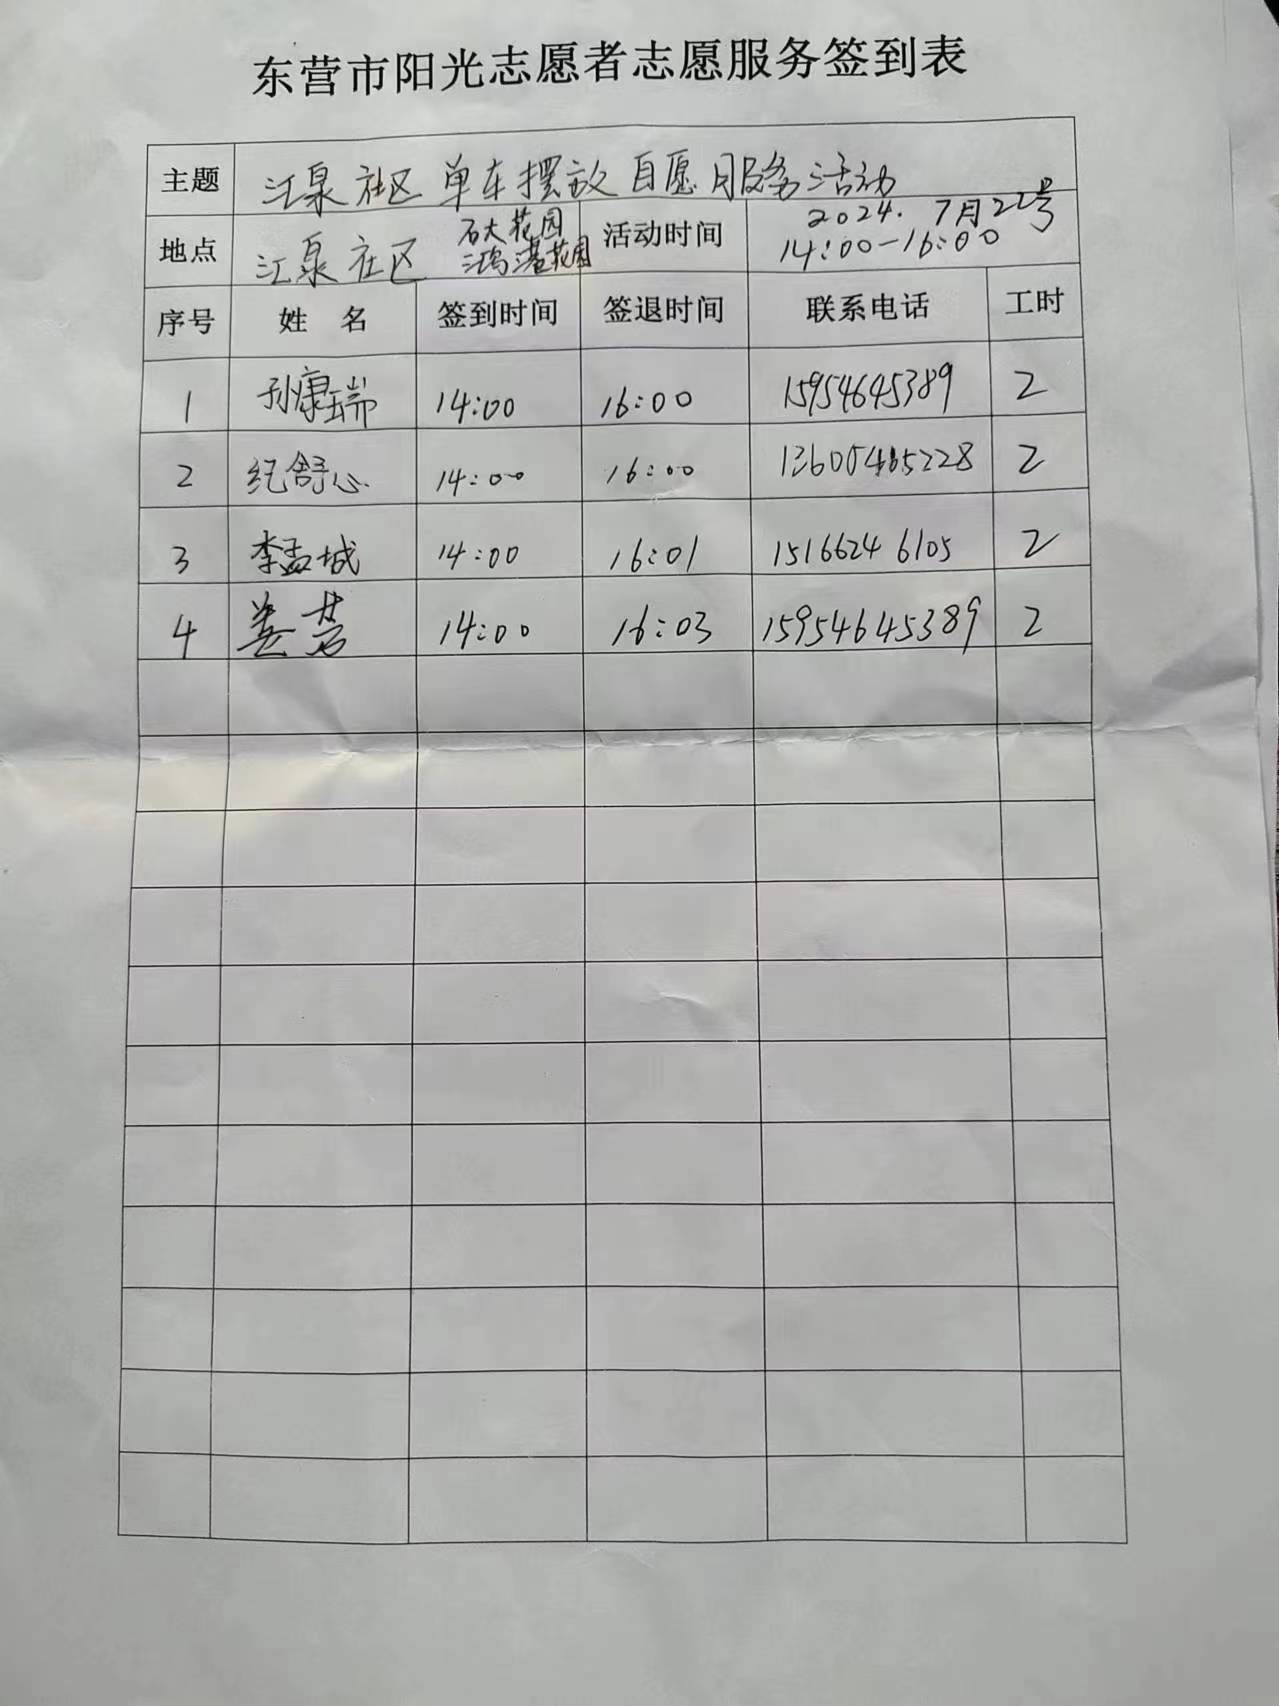 东营市阳光志愿者志愿服务签到表
主题 江泉社区单车摆放自愿服务活动
地点 江泉社区 石大花园 鸿港花园 活动时间 2024.7月22号 14:00-16:00
序号 姓 名 签到时间 签退时间 联系电话 工时
1 孙康瑞 14:00 16:00 15954645389 2
2 纪舒心 14:00 16:00 13605465228 2
3 李孟城 14:00 16:01 15166246105 2
4 姜芸 14:00 16:03 15954645389 2